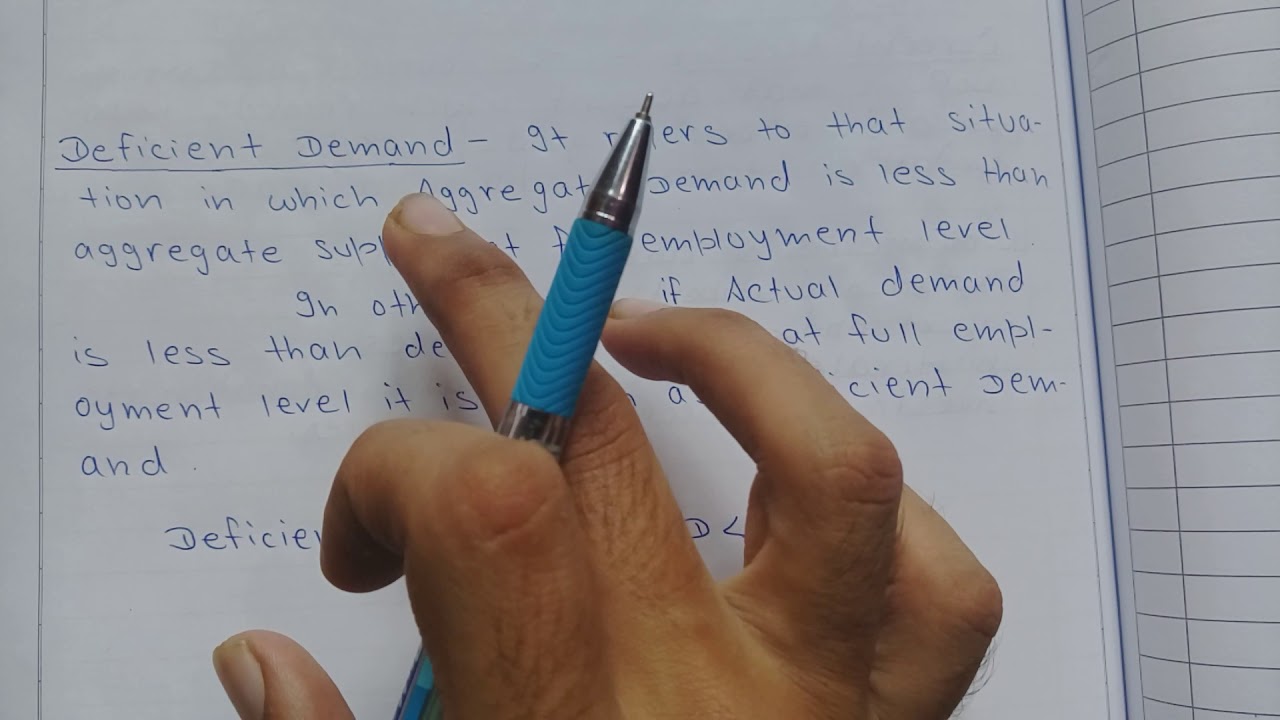 Deficient Demand - It refers to that situa-
tion in which Aggregate Demand is less than
aggregate supply at employment level.
In if Actual demand
is less than at full empl-
oyment level it is Dem-
and.
D <